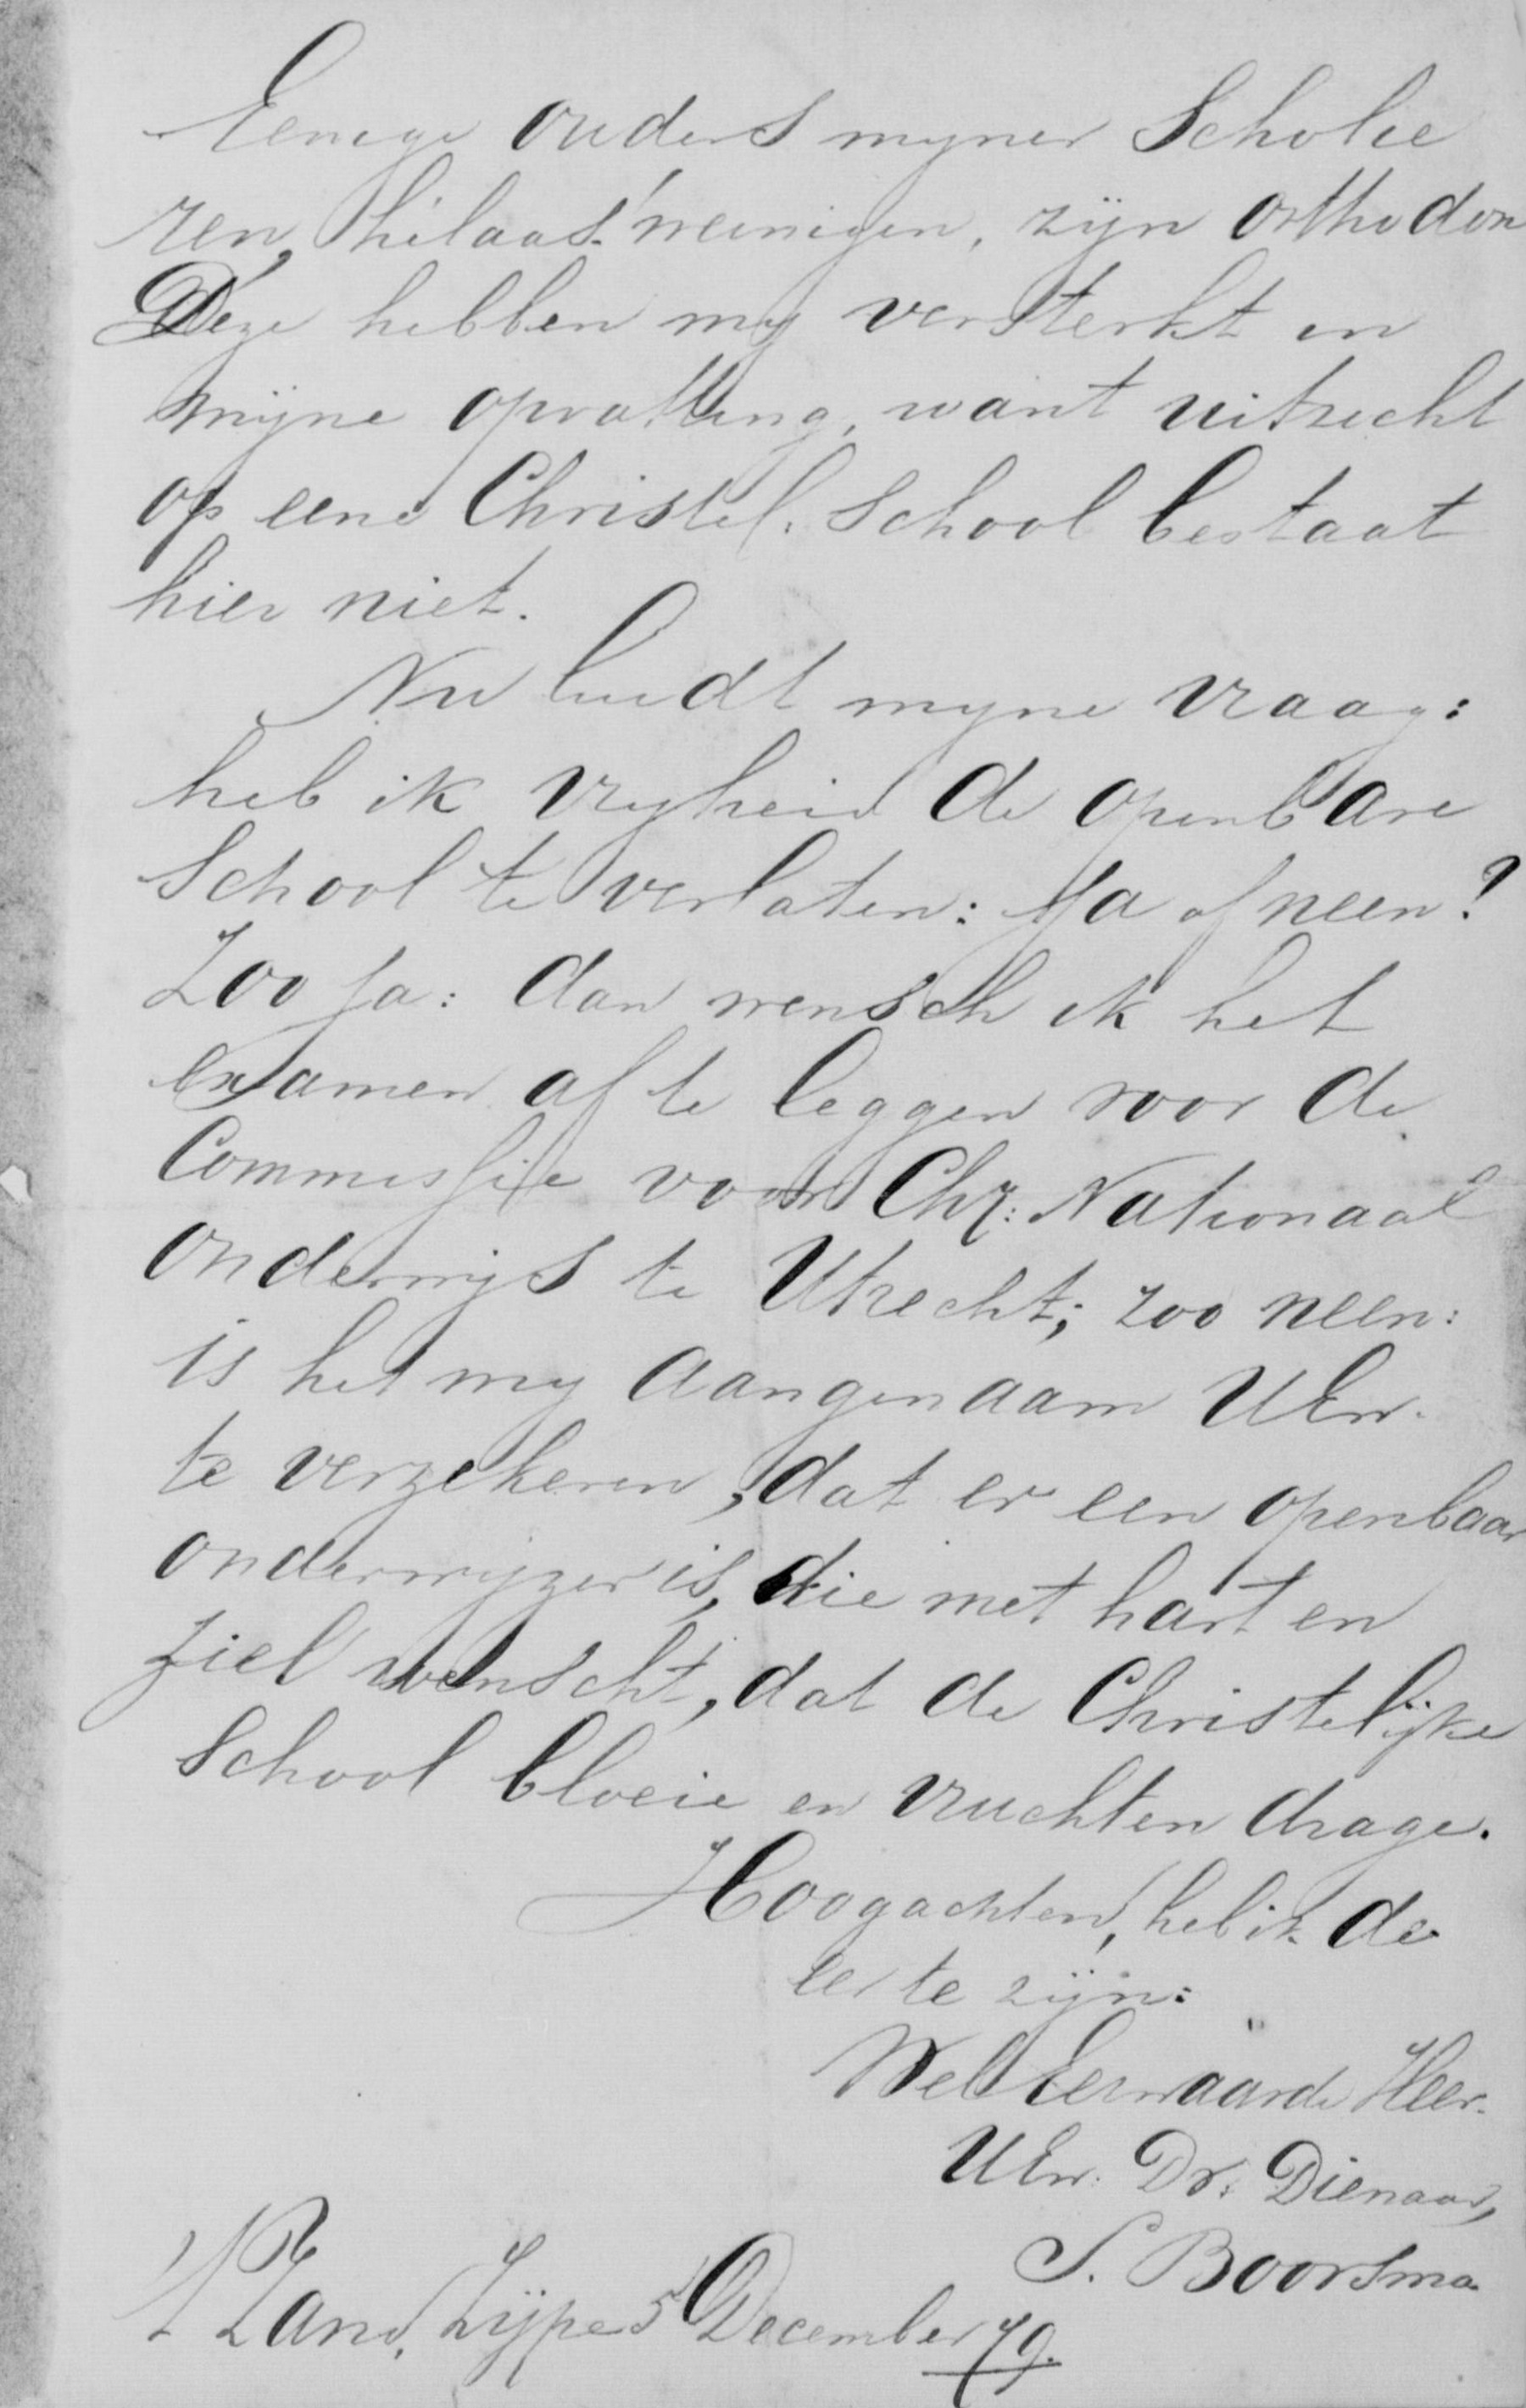 Eenige ouders mijner Scholie
ren, helaas! weinigen, zijn orthodox
Deze hebben mij versterkt in
mijne opvatting, want uitzicht
op eene Christel. School bestaat
hier niet.
Nu luidt mijne vraag:
heb ik vrijheid de openbare
School te verlaten: Ja of neen?
Zoo ja: dan wensch ik het
examen af te leggen voor de
Commissie voor Chr: Nationaal
onderwijs te Utrecht; zoo neen:
is het mij aangenaam UEw.
te verzekeren, dat er een openbaar
onderwijzer is, die met hart en
ziel wenscht, dat de Christelijke
School bloeie en vruchten drage.
Hoogachtend, heb ik de
eer te zijn:
WelEerwaarde Heer.
UEw. Dr. Dienaar,
S. Boorsma
't Zand, Zijpe 5 December 79.